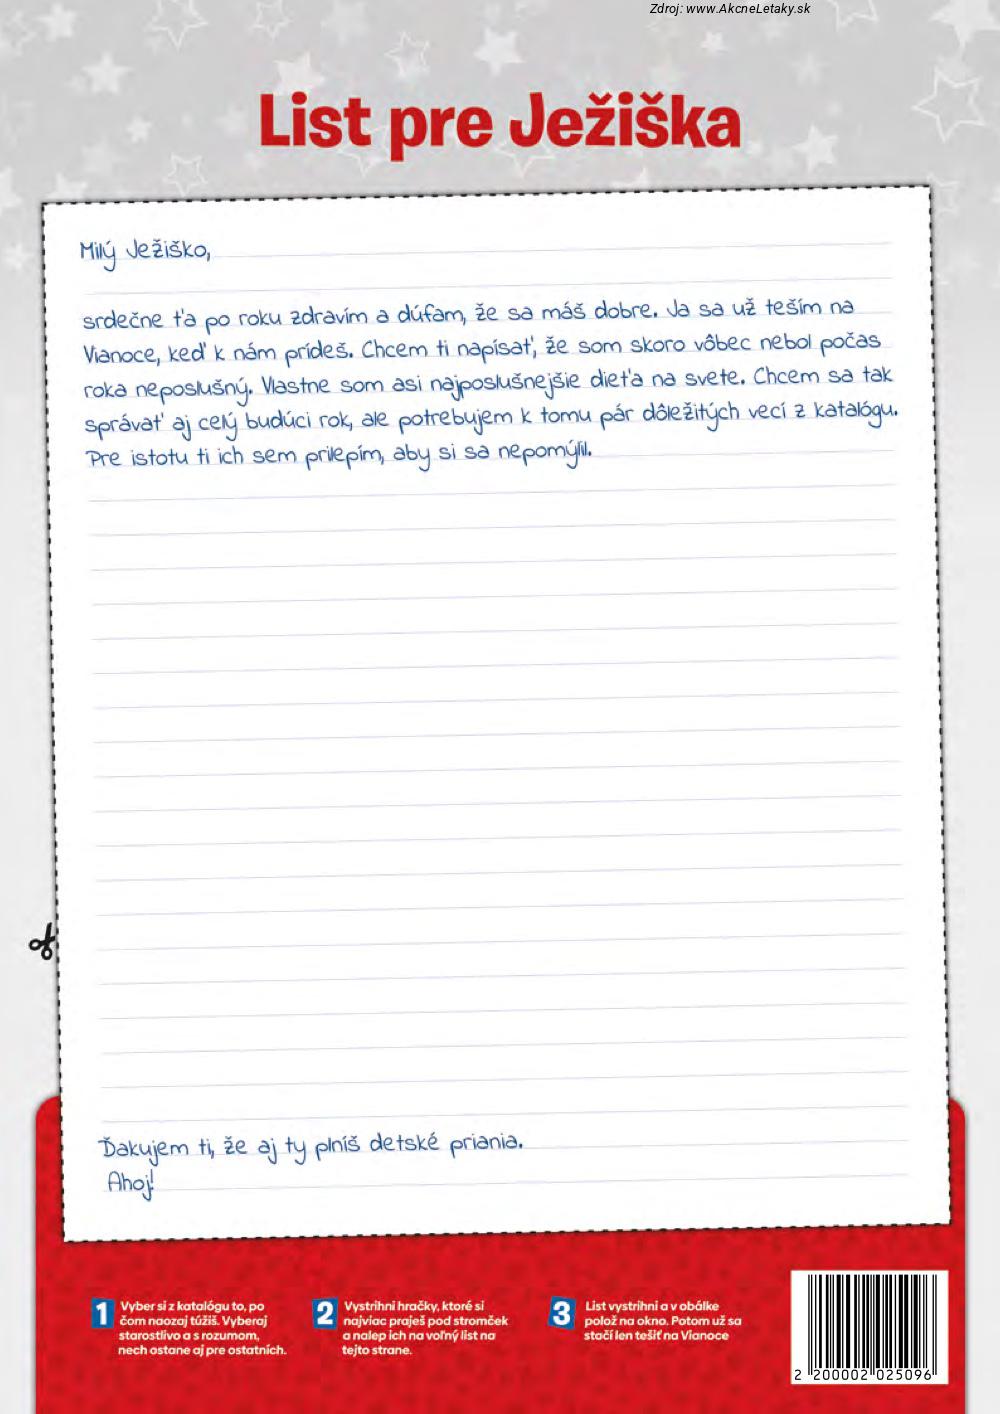 Zdroj: www.AkcneLetaky.sk
List pre Ježiška
Milý Ježiško,
srdečne ťa po roku zdravím a dúfam, že sa máš dobre. Ja sa už teším na
Vianoce, keď k nám prídeš. Chcem ti napísať, že som skoro vôbec nebol počas
roka neposlušný. Vlastne som asi najposlušnejšie dieťa na svete. Chcem sa tak
správať aj celý budúci rok, ale potrebujem k tomu pár dôležitých vecí z katalógu.
Pre istotu ti ich sem prilepím, aby si sa nepomýlil.
Ďakujem ti, že aj ty plníš detské priania.
Ahoj!
1 Vyber si z katalógu to, po
čom naozaj túžiš. Vyberaj
starostlivo a s rozumom,
nech ostane aj pre ostatných.
2 Vystrihni hračky, ktoré si
najviac praješ pod stromček
a nalep ich na voľný list na
tejto strane.
3 List vystrihni a v obálke
polož na okno. Potom už sa
stačí len tešiť na Vianoce
2 200002 025096